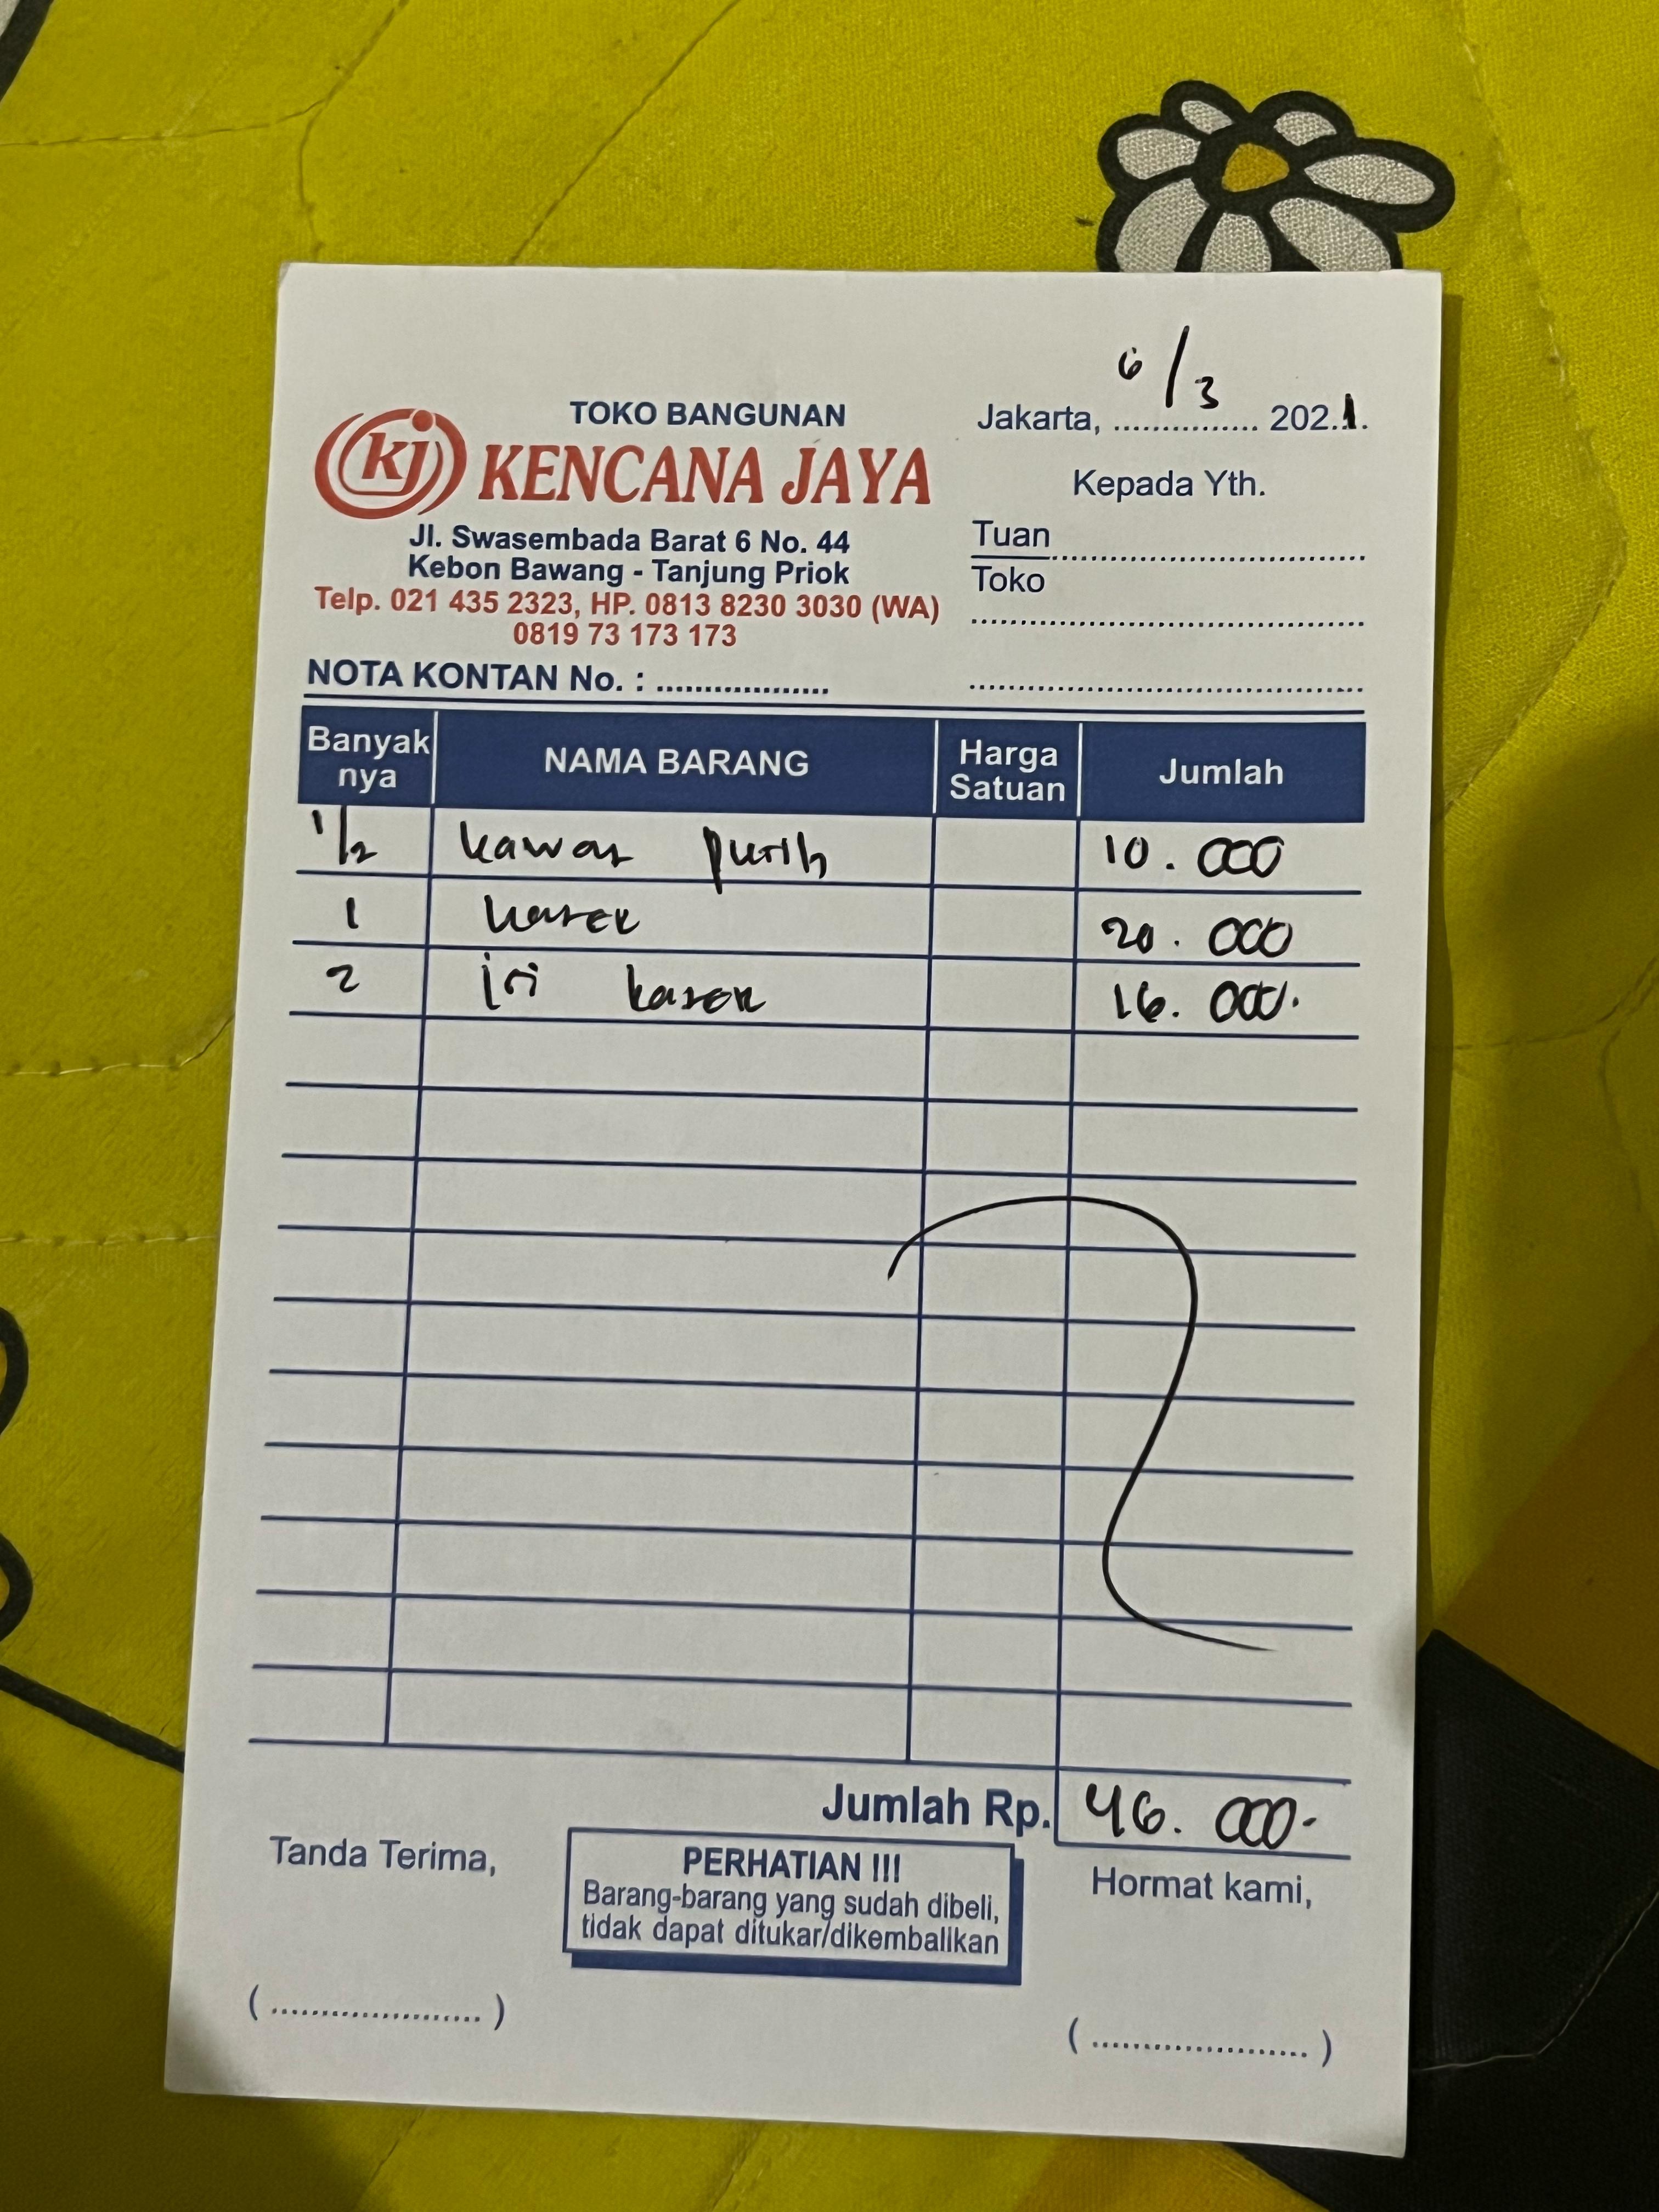 6/3
TOKO BANGUNAN
Jakarta, ............... 202.1.
kj KENCANA JAYA
Kepada Yth.
Jl. Swasembada Barat 6 No. 44
Kebon Bawang - Tanjung Priok
Telp. 021 435 2323, HP. 0813 8230 3030 (WA)
0819 73 173 173
Tuan
Toko
NOTA KONTAN No. : ..................
Banyak nya NAMA BARANG Harga Satuan Jumlah
1/2 kawat putih 10.000
1 20.000
2 isi 16.000.
Jumlah Rp. 46.000-
Tanda Terima,
PERHATIAN !!!
Barang-barang yang sudah dibeli,
tidak dapat ditukar/dikembalikan
Hormat kami,
( ...................... )
( ...................... )